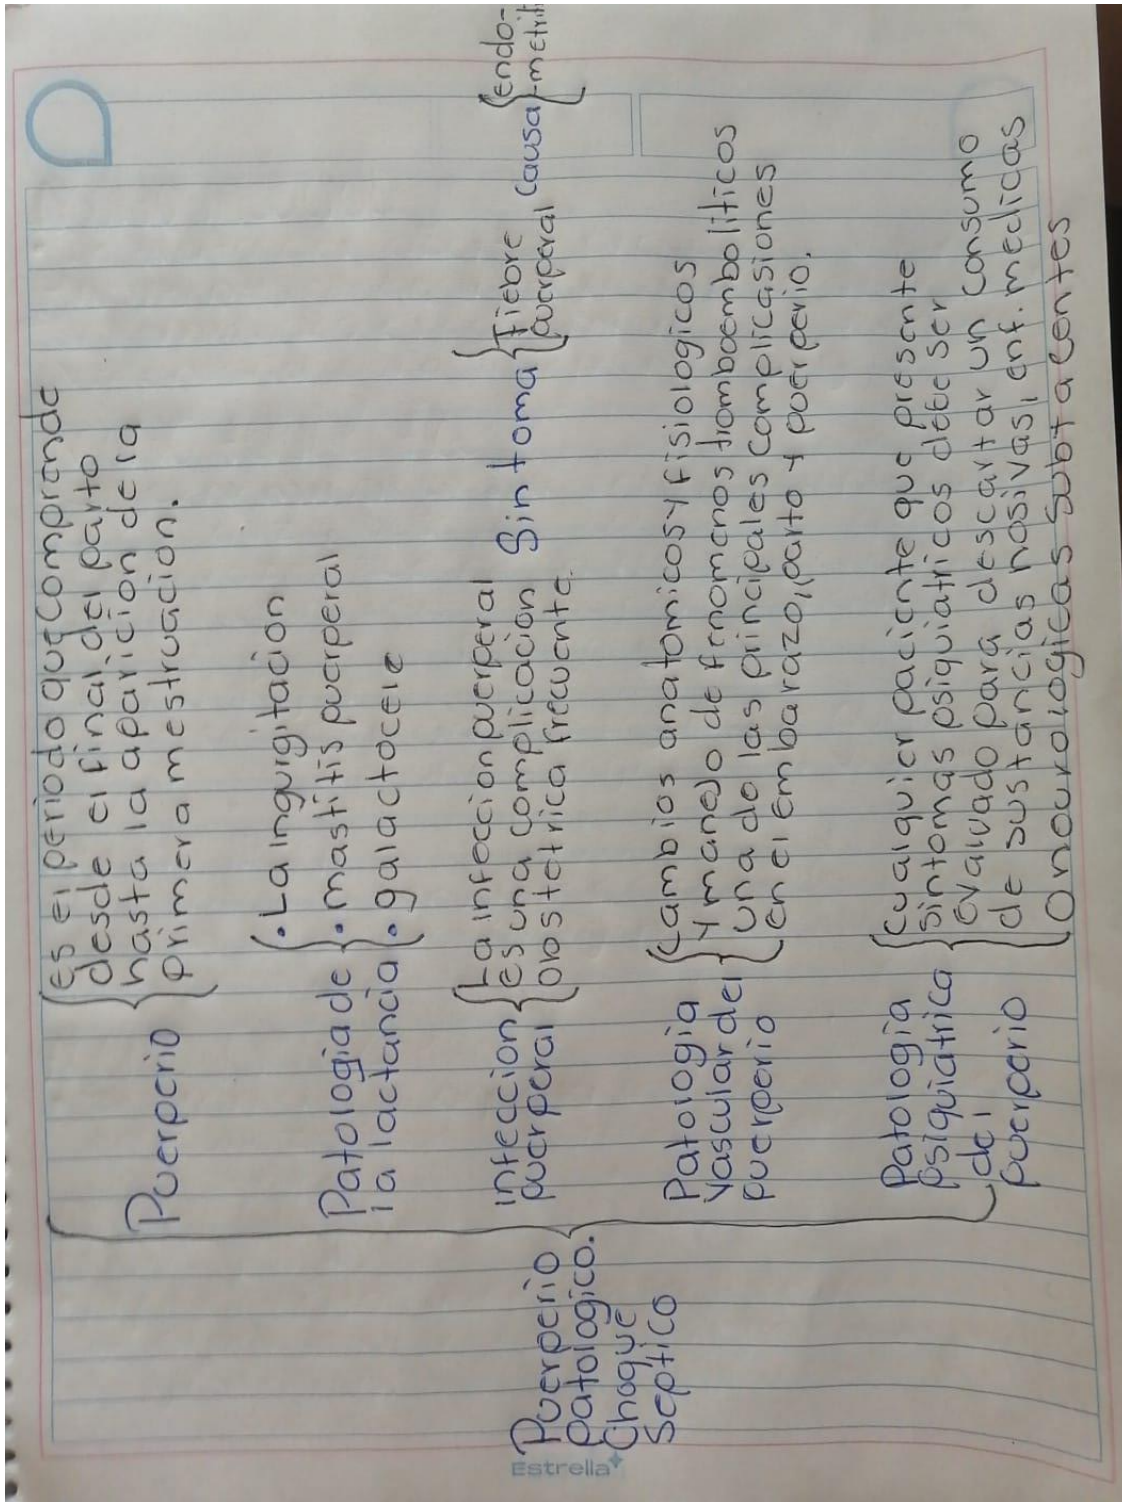 Puerperio
patologico.
Choque
Septico
Puerperio
es el periodo que comprende
desde el final del parto
hasta la aparicion de la
primera mestruacion.
Patologia de
la lactancia
• La ingurgitacion
• mastitis puerperal
• galactocele
infeccion
puerperal
La infeccion puerperal
es una complicacion
obstetrica frecuente.
Sintoma
fiebre
puerperal
Causa
endo-
-metriti
Patologia
vascular del
puerperio
Cambios anatomicos y fisiologicos
y manejo de fenomenos tromboemboliticos
una de las principales complicasiones
en el embarazo, parto y puerperio.
Patologia
psiquiatrica
del
puerperio
Cualquier paciente que presente
sintomas psiquiatricos debe ser
evaluado para descartar un consumo
de sustancias nosivas, enf. medicas
o neurologicas subtacentes
Estrella